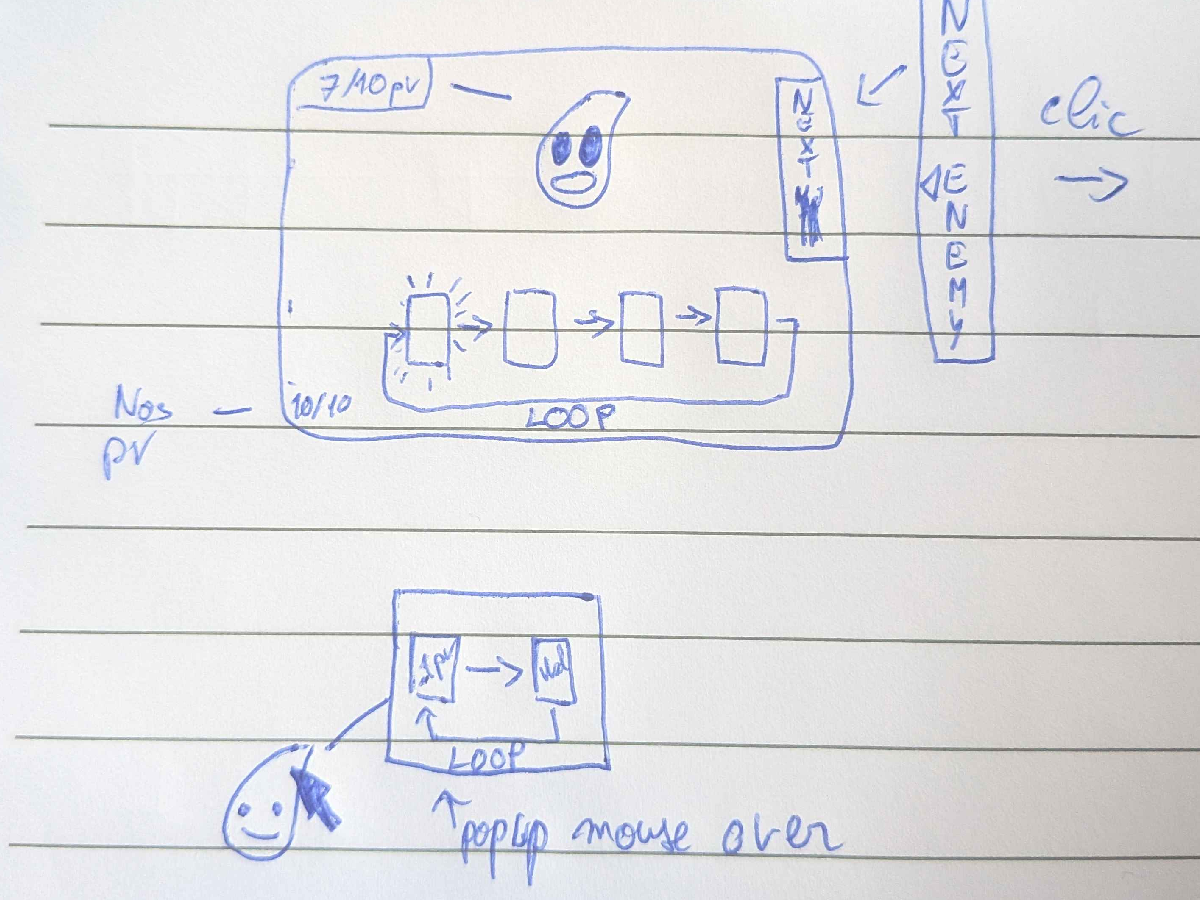 7/10pv
NEXT
NEXT
ENEMY
clic
10/10
LOOP
Nos
pv
1pv
LOOP
popup mouse over